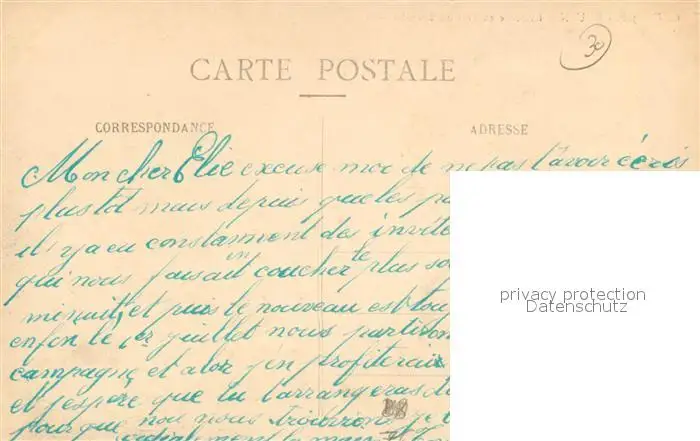 30
CARTE POSTALE
CORRESPONDANCE
ADRESSE
Mon cher Elie excuse moi de ne pas t'avoir écris
plus tôt mais depuis queles
il y a eu constanment des invité
qui nous faisait coucher le plus
minuit, et puis le nouveau est
enfin le 1er juillet nous partiron
campagne et alor j'en profiterai
et j'espère que tu t'arrangeras
pour que nou nous
cordialement la main
privacy protection
Datenschutz